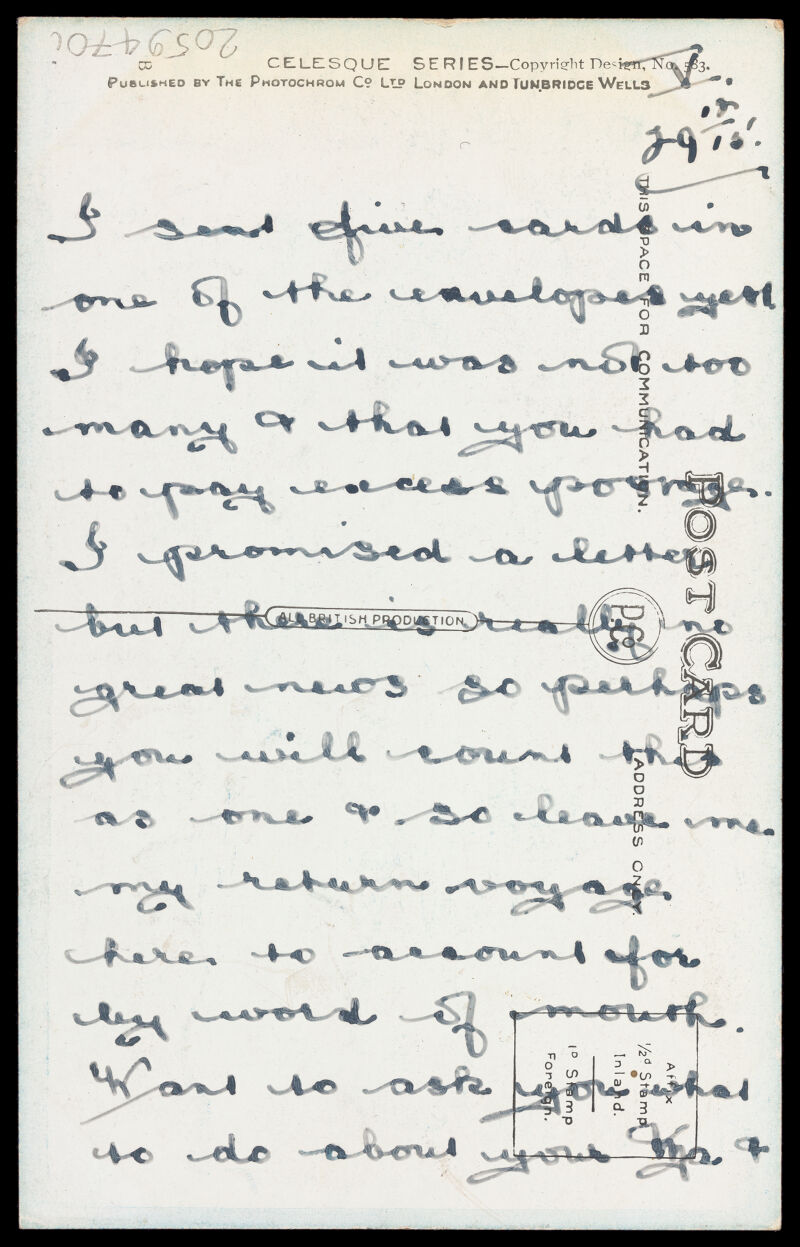 2059470
CELESQUE SERIES—Copyright Design, No. 583.
PUBLISHED BY THE PHOTOCHROM Co LTD LONDON AND TUNBRIDGE WELLS
V.
29 15.
I sent five cards in
one of the envelopes yest
I hope it was not too
many & that you had
to pay excess postage.
I promised a letter
but there is really no
great news so perhaps
you will count this
as one & so leave me
my return voyage
here to account for
by word of mouth.
Want to ask you what
to do about your &
THIS SPACE FOR COMMUNICATION.
POST CARD
ALL BRITISH PRODUCTION
P Co
ADDRESS ONLY.
Affix
½d Stamp
Inland.
1D Stamp
Foreign.